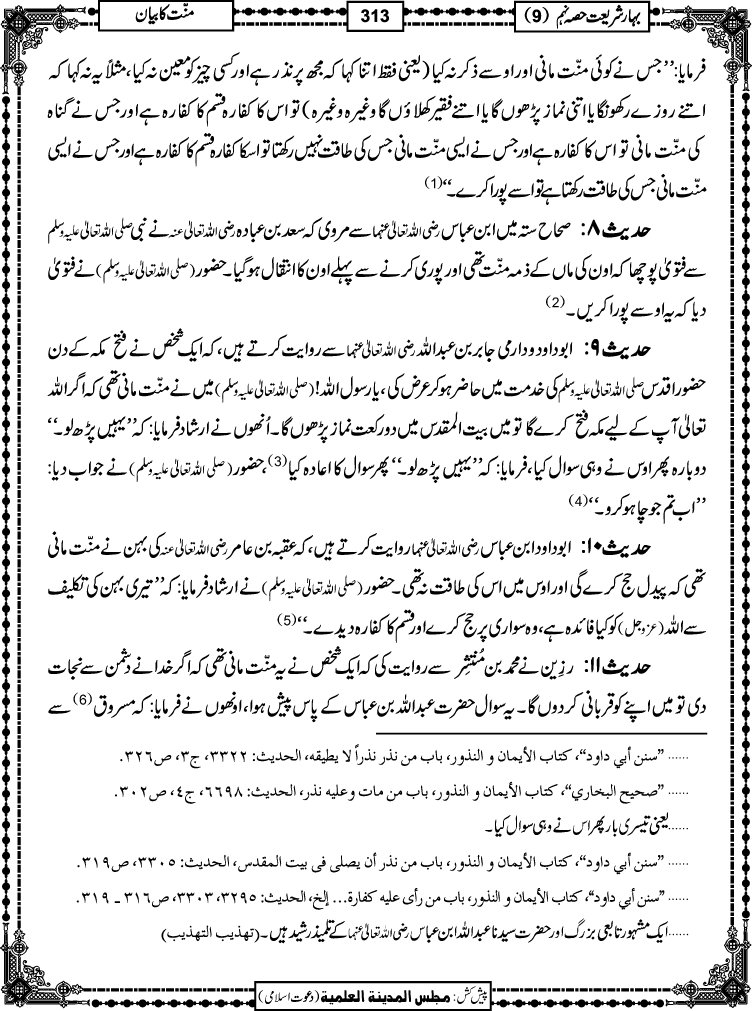 بہارِ شریعت حصہ نہم (9)
313
منّت کا بیان
فرمایا: ”جس نے کوئی منّت مانی اور اوسے ذکر نہ کیا (یعنی فقط اتنا کہا کہ مجھ پر نذر ہے اور کسی چیز کو معین نہ کیا، مثلاً یہ نہ کہا کہ
اتنے روزے رکھونگا یا اتنی نماز پڑھوں گا یا اتنے فقیر کھلاؤں گا وغیرہ وغیرہ) تو اس کا کفارہ قسم کا کفارہ ہے اور جس نے گناہ
کی منّت مانی تو اس کا کفارہ ہے اور جس نے ایسی منّت مانی جس کی طاقت نہیں رکھتا تو اسکا کفارہ قسم کا کفارہ ہے اور جس نے ایسی
منّت مانی جس کی طاقت رکھتا ہے تو اسے پورا کرے۔“ (1)
حدیث ۸: صحاح ستہ میں ابن عباس رضی اللہ تعالیٰ عنہما سے مروی کہ سعد بن عبادہ رضی اللہ تعالیٰ عنہ نے نبی صلی اللہ تعالیٰ علیہ وسلم
سے فتویٰ پوچھا کہ اون کی ماں کے ذمہ منّت تھی اور پوری کرنے سے پہلے اون کا انتقال ہوگیا۔ حضور (صلی اللہ تعالیٰ علیہ وسلم) نے فتویٰ
دیا کہ یہ اوسے پورا کریں۔ (2)
حدیث ۹: ابو داود و دارمی جابر بن عبداللہ رضی اللہ تعالیٰ عنہما سے روایت کرتے ہیں، کہ ایک شخص نے فتح مکہ کے دن
حضور اقدس صلی اللہ تعالیٰ علیہ وسلم کی خدمت میں حاضر ہو کر عرض کی، یارسول اللہ! (صلی اللہ تعالیٰ علیہ وسلم) میں نے منّت مانی تھی کہ اگر اللہ
تعالیٰ آپ کے لیے مکہ فتح کرے گا تو میں بیت المقدس میں دو رکعت نماز پڑھوں گا۔ اُنھوں نے ارشاد فرمایا: کہ ”یہیں پڑھ لو۔“
دوبارہ پھر اوس نے وہی سوال کیا، فرمایا: کہ ”یہیں پڑھ لو۔“ پھر سوال کا اعادہ کیا (3)، حضور (صلی اللہ تعالیٰ علیہ وسلم) نے جواب دیا:
”اب تم جو چاہو کرو۔“ (4)
حدیث ۱۰: ابو داود ابن عباس رضی اللہ تعالیٰ عنہما روایت کرتے ہیں، کہ عقبہ بن عامر رضی اللہ تعالیٰ عنہ کی بہن نے منّت مانی
تھی کہ پیدل حج کرے گی اور اوس میں اس کی طاقت نہ تھی۔ حضور (صلی اللہ تعالیٰ علیہ وسلم) نے ارشاد فرمایا: کہ ”تیری بہن کی تکلیف
سے اللہ (عزوجل) کو کیا فائدہ ہے، وہ سواری پر حج کرے اور قسم کا کفارہ دیدے۔“ (5)
حدیث ۱۱: رزین نے محمد بن مُنْتَشِر سے روایت کی کہ ایک شخص نے یہ منّت مانی تھی کہ اگر خدا نے دشمن سے نجات
دی تو میں اپنے کو قربانی کردوں گا۔ یہ سوال حضرت عبداللہ بن عباس کے پاس پیش ہوا، اونھوں نے فرمایا: کہ مسروق (6) سے
...... ”سنن أبي داود“، كتاب الأيمان و النذور، باب من نذر نذراً لا يطيقه، الحديث: ٣٣٢٢، ج٣، ص٣٢٦.
...... ”صحيح البخاري“، كتاب الأيمان و النذور، باب من مات وعليه نذر، الحديث: ٦٦٩٨، ج٤، ص٣٠٢.
...... یعنی تیسری بار پھر اس نے وہی سوال کیا۔
...... ”سنن أبي داود“، كتاب الأيمان و النذور، باب من نذر أن يصلى فى بيت المقدس، الحديث: ٣٣٠٥، ص٣١٩.
...... ”سنن أبي داود“، كتاب الأيمان و النذور، باب من رأى عليه كفارة... إلخ، الحديث: ٣٢٩٥، ٣٣٠٣، ص٣١٦ ـ ٣١٩.
...... ایک مشہور تابعی بزرگ اور حضرت سیدنا عبداللہ ابن عباس رضی اللہ تعالیٰ عنہما کے تلمیذ رشید ہیں۔ (تهذيب التهذيب)
پیش کش: مجلس المدينة العلمية (دعوت اسلامی)